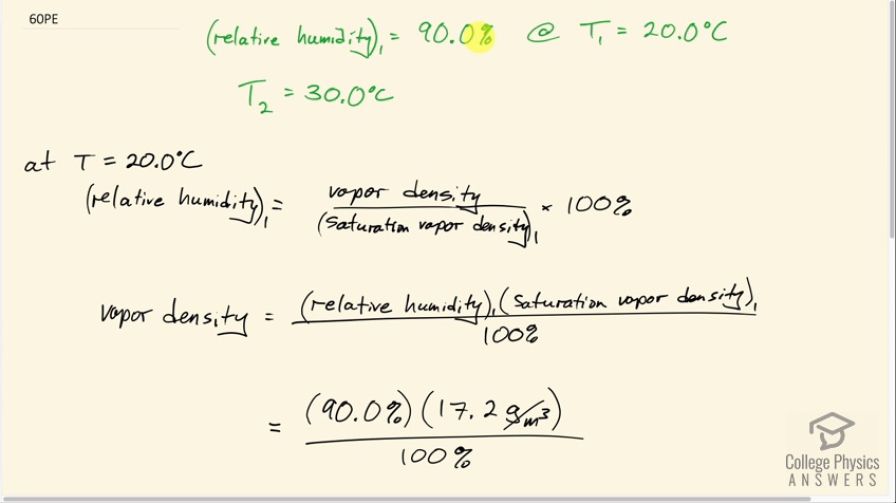 60PE
(relative humidity)₁ = 90.0% @ T₁ = 20.0°C
T₂ = 30.0°C
at T = 20.0°C
(relative humidity)₁ = vapor density / (saturation vapor density)₁ × 100%
vapor density = (relative humidity)₁ (saturation vapor density)₁ / 100%
= (90.0%) (17.2 g/m³) / 100%
College Physics
ANSWERS